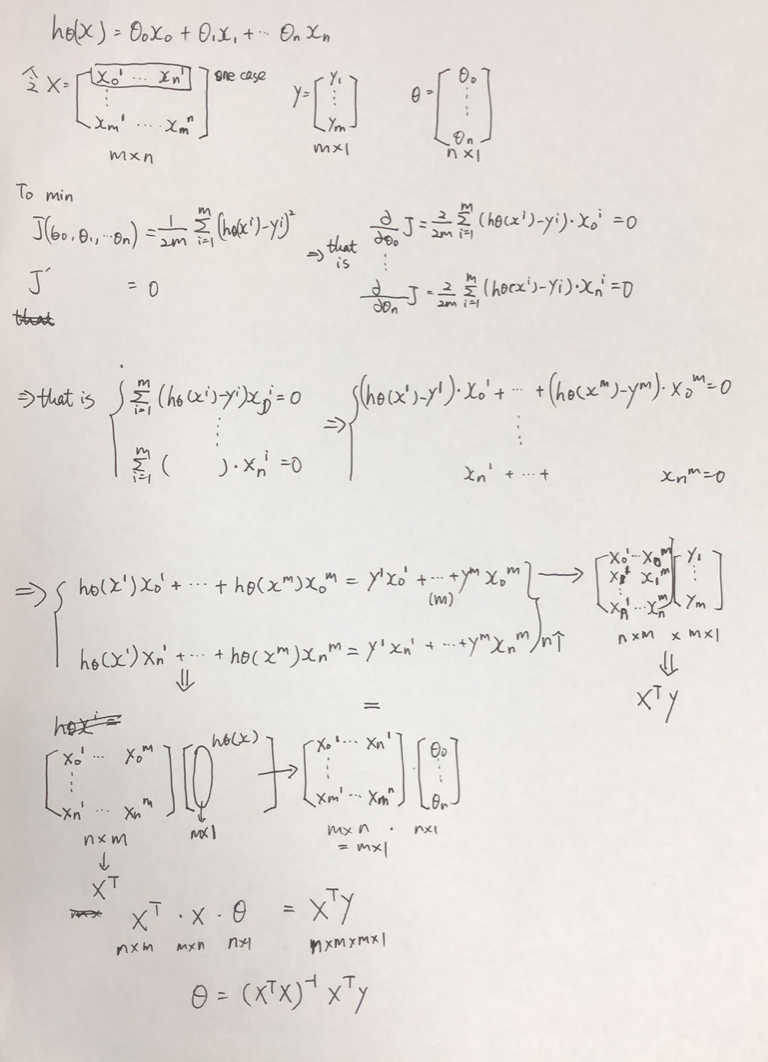 hθ(x) = θ₀x₀ + θ₁x₁ + ⋯ θₙxₙ
令 X = [x₀¹ ⋯ xₙ¹ ⋮ xₘ¹ ⋯ xₘⁿ] one case Y = [y₁ ⋮ yₘ] θ = [θ₀ ⋮ θₙ]
m×n m×1 n×1
To min
J(θ₀, θ₁, ⋯θₙ) = 1/2m Σᵢ₌₁ᵐ (hθ(xⁱ)-yⁱ)² ⇒ that is ∂/∂θ₀ J = 2/2m Σᵢ₌₁ᵐ (hθ(xⁱ)-yⁱ)·x₀ⁱ = 0
⋮
J′ = 0 ∂/∂θₙ J = 2/2m Σᵢ₌₁ᵐ (hθ(xⁱ)-yᵢ)·xₙⁱ = 0
that
⇒ that is { Σᵢ₌₁ᵐ (hθ(xⁱ)-yⁱ)x₀ⁱ = 0 ⇒ { (hθ(x¹)-y¹)·x₀¹ + ⋯ + (hθ(xᵐ)-yᵐ)·x₀ᵐ = 0
⋮ ⋮
Σᵢ₌₁ᵐ ( )·xₙⁱ = 0 xₙ¹ + ⋯ + xₙᵐ = 0
⇒ { hθ(x¹)x₀¹ + ⋯ + hθ(xᵐ)x₀ᵐ = y¹x₀¹ + ⋯ + yᵐx₀ᵐ → [x₀¹ ⋯ x₀ᵐ x₁¹ x₁ᵐ ⋮ xₙ¹ ⋯ xₙᵐ] [y₁ ⋮ yₘ]
(m)
hθ(x¹)xₙ¹ + ⋯ + hθ(xᵐ)xₙᵐ = y¹xₙ¹ + ⋯ + yᵐxₙᵐ } n↑ n×m × m×1
⇓ ⇓
= XᵀY
hθxⁱ =
[x₀¹ ⋯ x₀ᵐ ⋮ xₙ¹ ⋯ xₙᵐ] [ hθ(x) ] → [x₀¹ ⋯ xₙ¹ ⋮ xₘ¹ ⋯ xₘⁿ] · [θ₀ ⋮ θₙ]
n×m m×1 m×n · n×1
↓ = m×1
Xᵀ
Xᵀ · X · θ = XᵀY
n×m m×n n×1 n×m×m×1
θ = (XᵀX)⁻¹ XᵀY